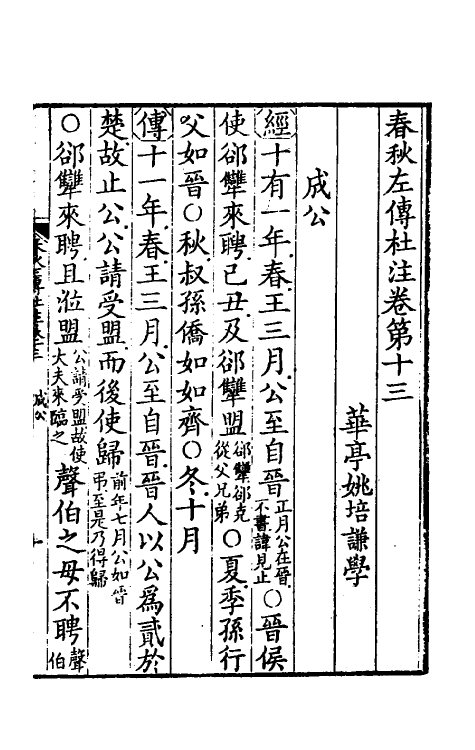 春秋左傳杜注卷第十三
華亭姚培謙學
成公
經十有一年春王三月公至自晉正月公在晉不書諱見止○晉侯
使郤犨來聘己丑及郤犨盟郤犨郤克從父兄弟○夏季孫行
父如晉○秋叔孫僑如如齊○冬十月
傳十一年春王三月公至自晉晉人以公為貳於
楚故止公公請受盟而後使歸前年七月公如晉弔至是乃得歸
○郤犨來聘且涖盟公請受盟故使大夫來臨之聲伯之母不聘聲伯
成公